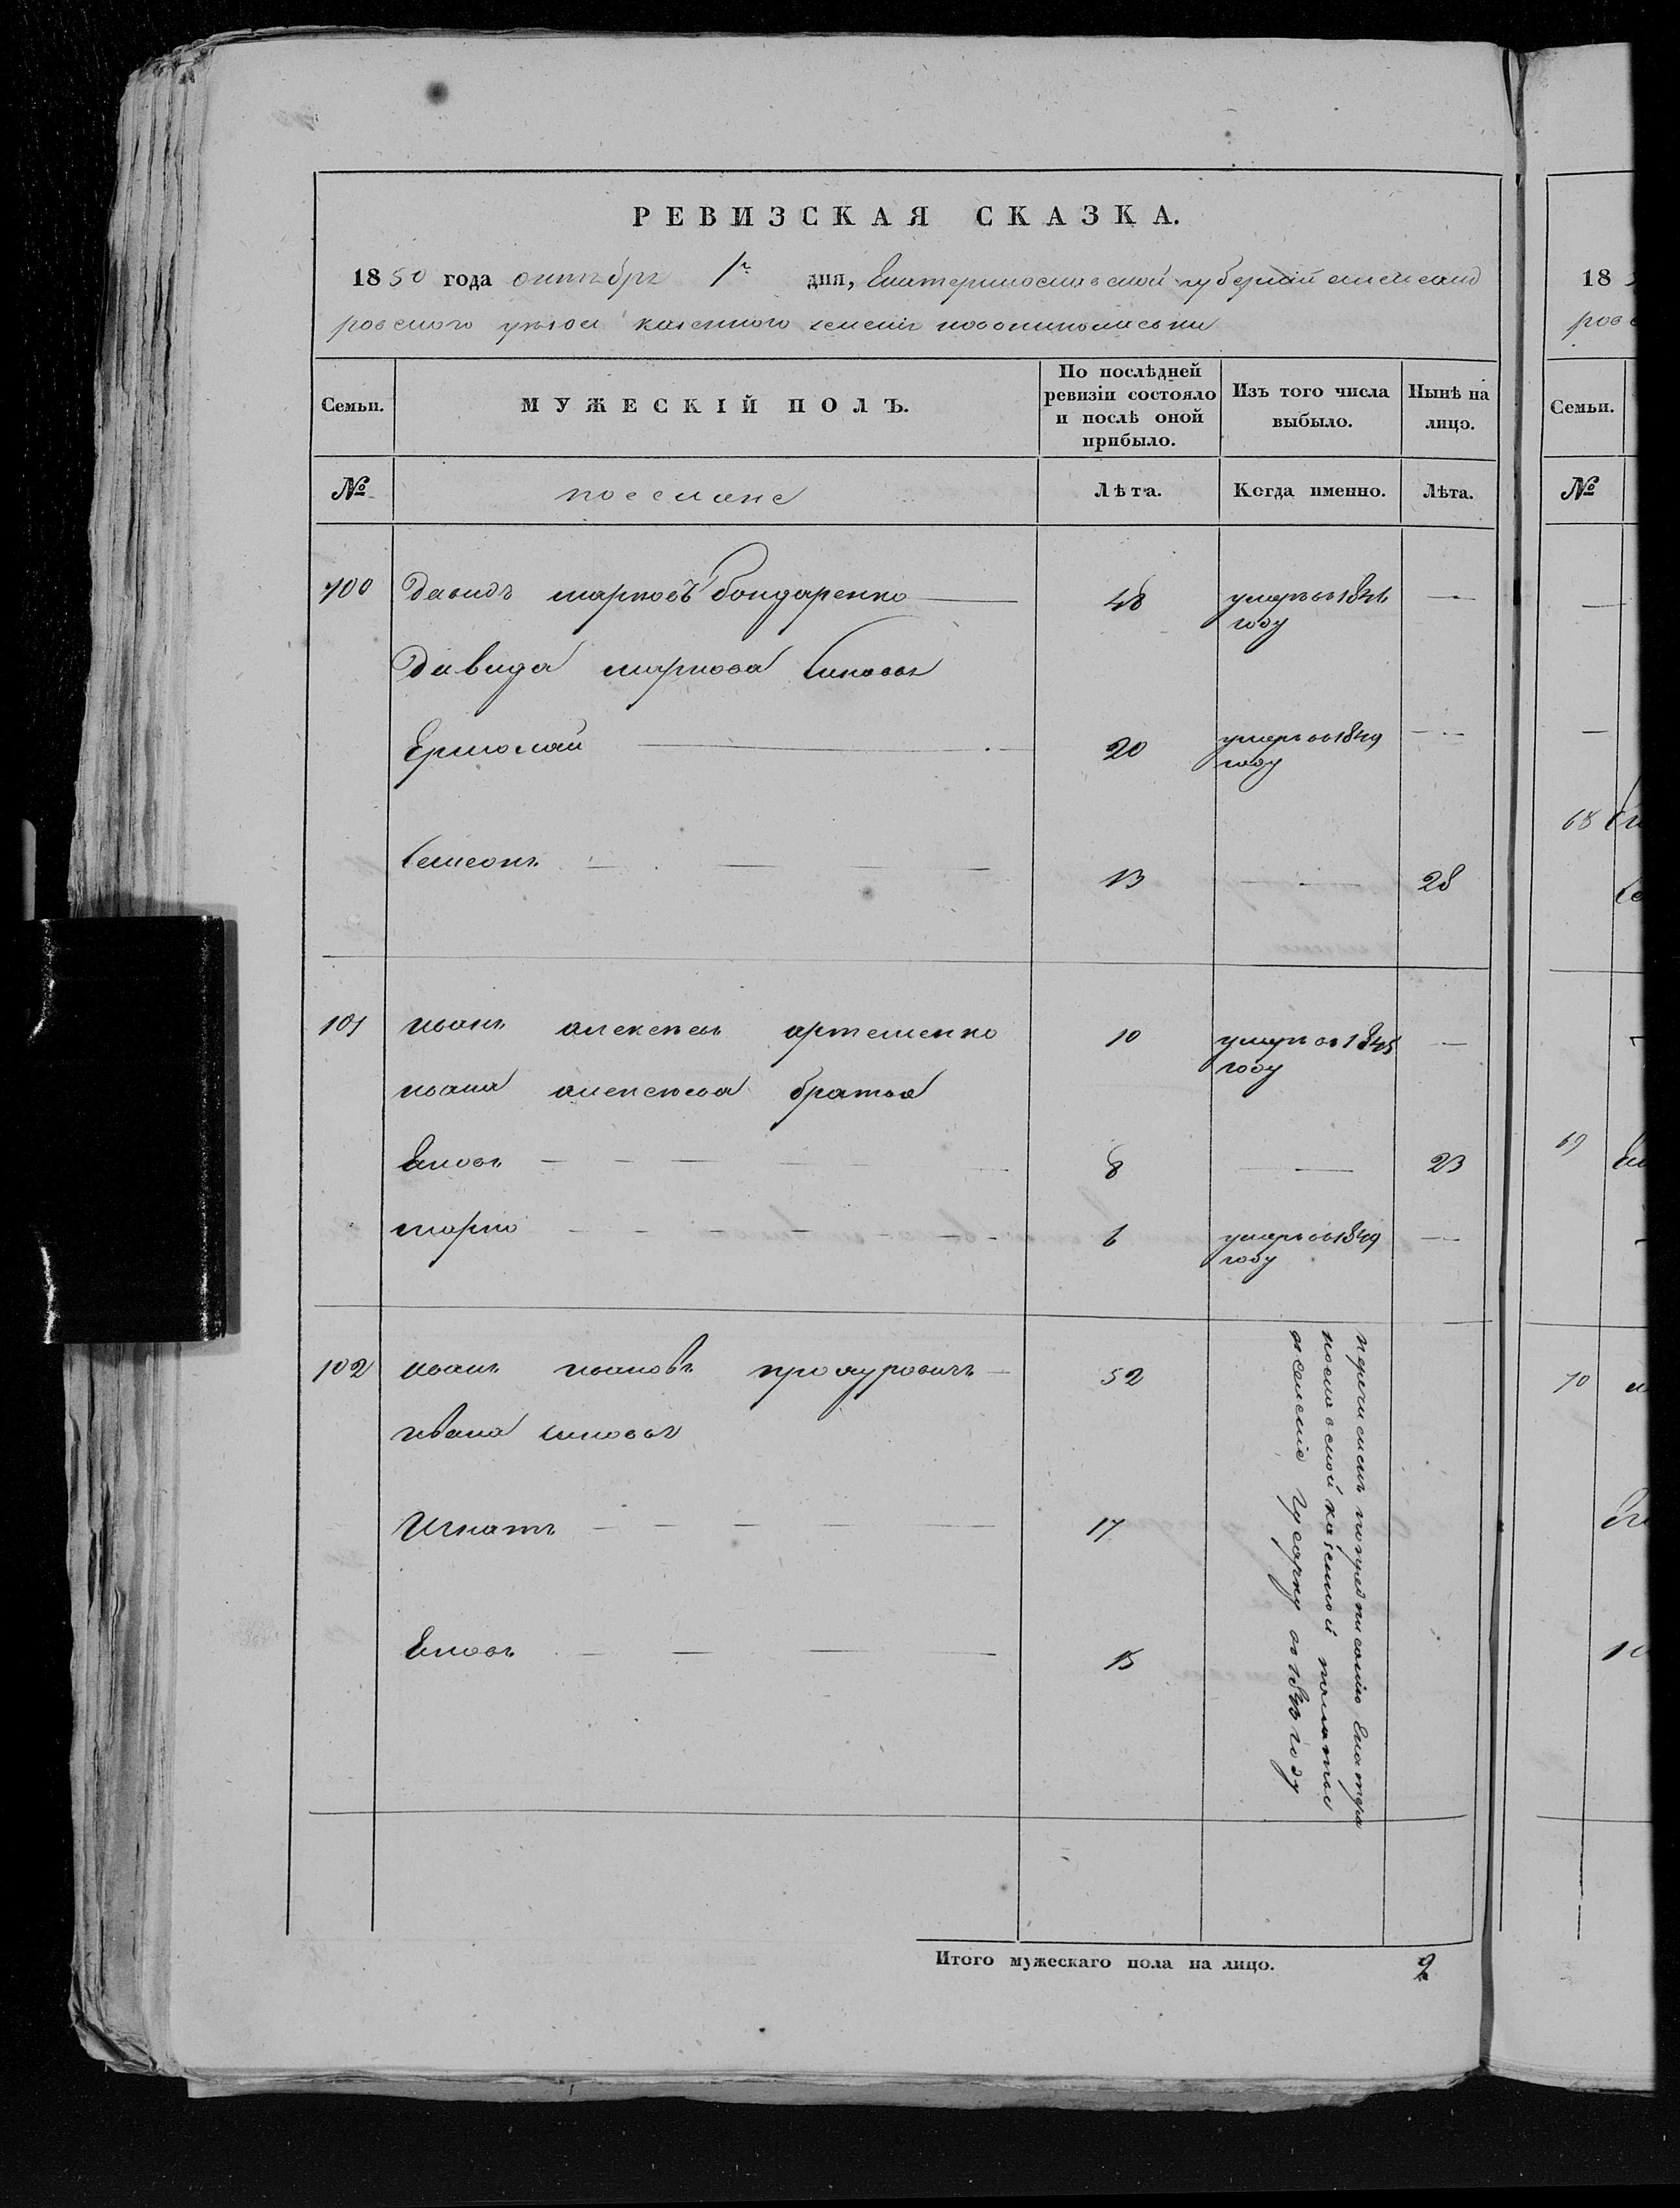 РЕВИЗСКАЯ СКАЗКА.
1850 года октября 1го дня, Екатеринославской губернии александ
ровского уезда казенного селения новониколаевки
Семьи. МУЖЕСКІЙ ПОЛЪ. По послѣдней ревизіи состояло и послѣ оной прибыло. Изъ того числа выбыло. Нынѣ на лицо.
№ поселяне Лѣта. Когда именно. Лѣта.
100 Давидъ марковъ бондаренко 48 умеръ въ 1846 году —
Давида маркова синовья
Ермолай 20 умеръ въ 1849 году —
Семеонъ 13 — 28
101 иванъ алексеевъ артеменко 10 умеръ въ 1845 году —
ивана алексеева братья
Яковъ 8 — 23
марко 6 умеръ въ 1849 году —
102 иванъ ивановъ 52
ивана синовья
Игнатъ 17
Яковъ 15
перечисленъ по предписанію Екатери
нославской казенной палаты
в селеніе гусарку въ году
Итого мужескаго пола на лицо. 2
18
ров
Семьи.
№
68
69
70